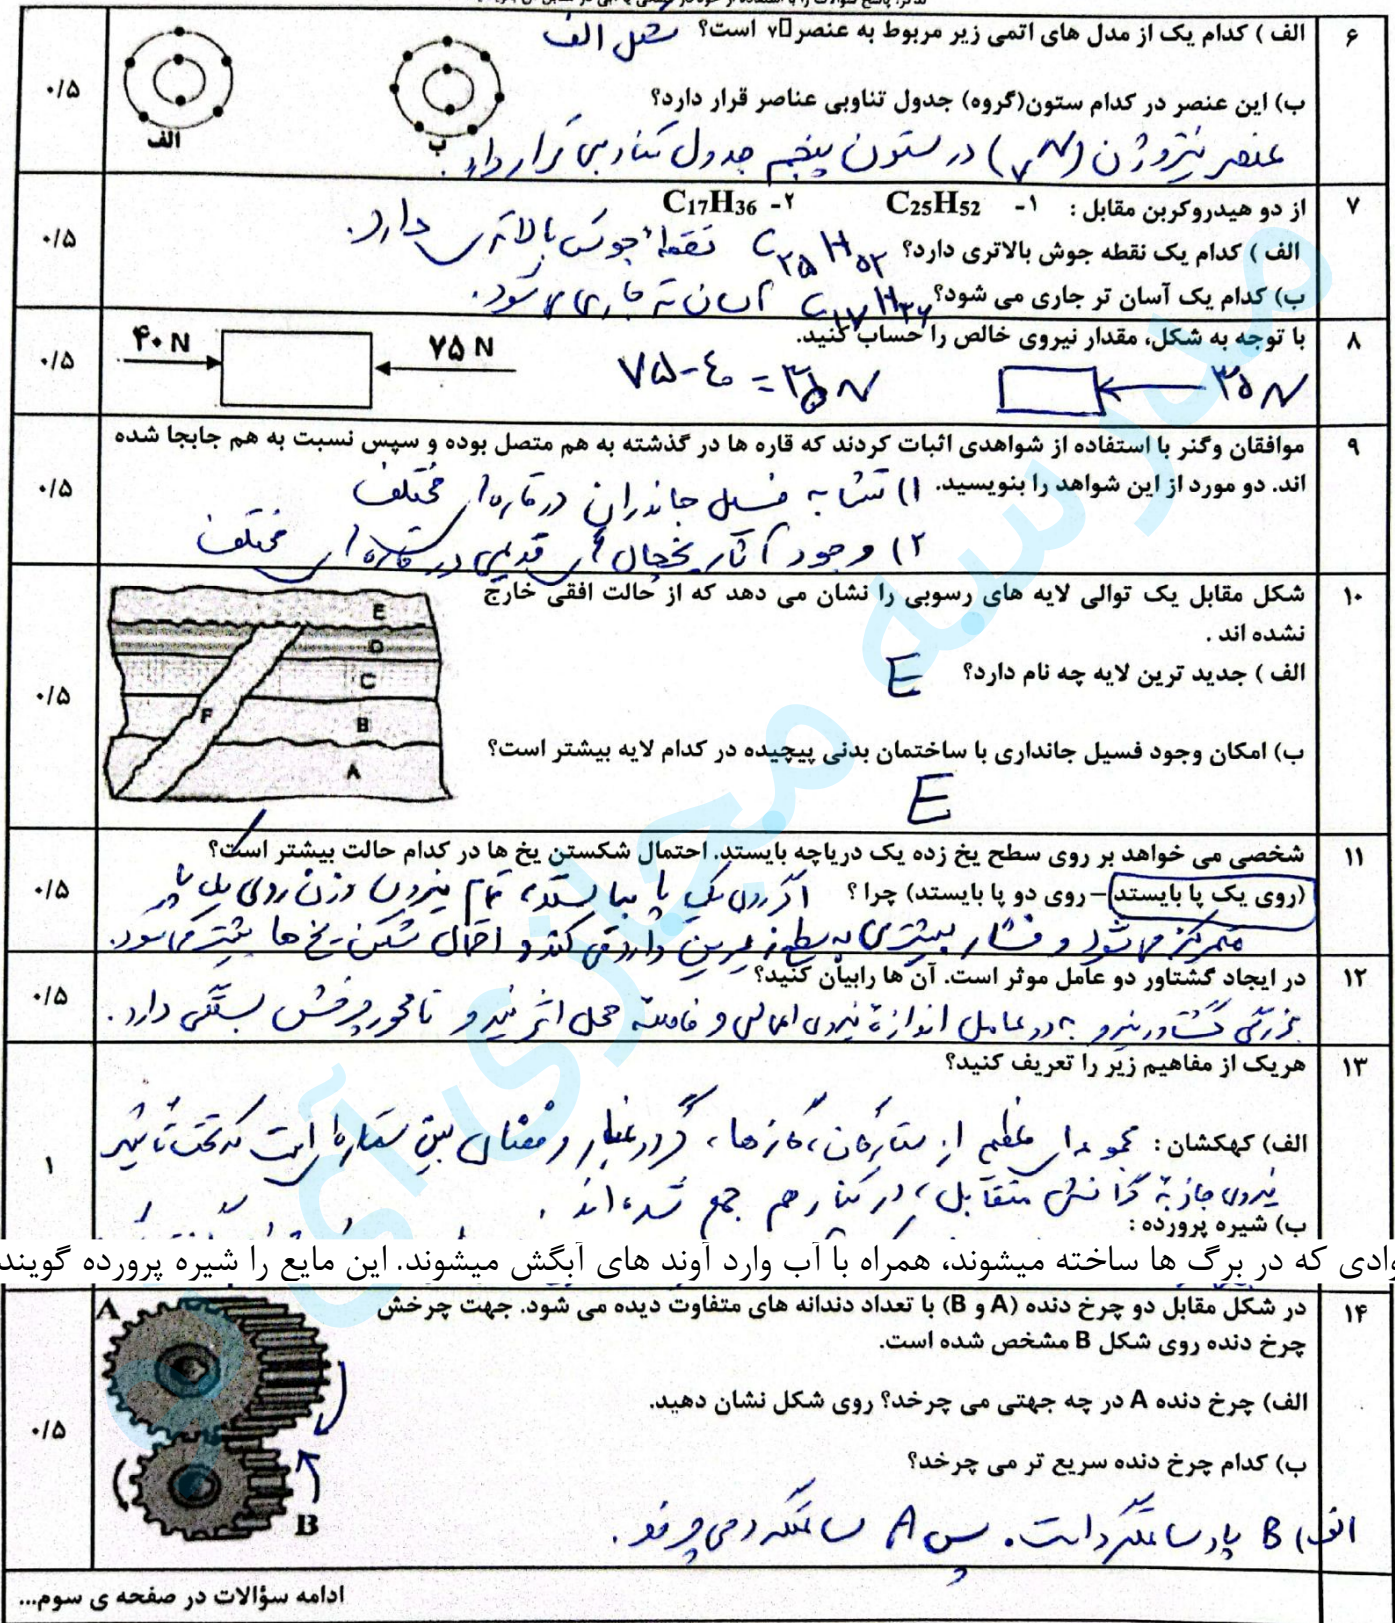 ۶ الف ) کدام یک از مدل های اتمی زیر مربوط به عنصر ۷ است؟ شکل الف
ب) این عنصر در کدام ستون(گروه) جدول تناوبی عناصر قرار دارد؟
الف ب ۰/۵
عنصر نیتروژن (₇N) در ستون پنجم جدول تناوبی قرار دارد.
۷ از دو هیدروکربن مقابل : ۱- C25H52 ۲- C17H36
الف ) کدام یک نقطه جوش بالاتری دارد؟ C۲۵H۵۲ نقطه جوش بالاتری دارد. ۰/۵
ب) کدام یک آسان تر جاری می شود؟ C۱۷H۳۶ آسان تر جاری می شود.
۸ با توجه به شکل، مقدار نیروی خالص را حساب کنید. ۰/۵
۴۰ N ۷۵ N
۷۵-۴۰ = ۳۵ N ۳۵ N
۹ موافقان وگنر با استفاده از شواهدی اثبات کردند که قاره ها در گذشته به هم متصل بوده و سپس نسبت به هم جابجا شده
اند. دو مورد از این شواهد را بنویسید. ۱) تشابه فسیل جانداران در قاره های مختلف ۰/۵
۲) وجود آثار یخچال های قدیمی در قاره های مختلف
۱۰ شکل مقابل یک توالی لایه های رسوبی را نشان می دهد که از حالت افقی خارج
نشده اند .
الف ) جدید ترین لایه چه نام دارد؟ E ۰/۵
ب) امکان وجود فسیل جانداری با ساختمان بدنی پیچیده در کدام لایه بیشتر است؟
E
E
D
C
F
B
A
۱۱ شخصی می خواهد بر روی سطح یخ زده یک دریاچه بایستد. احتمال شکستن یخ ها در کدام حالت بیشتر است؟
(روی یک پا بایستد – روی دو پا بایستد) چرا ؟ اگر روی یک پا بایستد، تمام نیروی وزن روی یک پا ۰/۵
متمرکز می شود و فشار بیشتری به سطح زیرین وارد می کند و احتمال شکستن یخ ها بیشتر می شود.
۱۲ در ایجاد گشتاور دو عامل موثر است. آن ها رابیان کنید؟ ۰/۵
بزرگی گشتاور نیرو به دو عامل اندازة نیروی اعمالی و فاصلة محل اثر نیرو تا محور چرخش بستگی دارد.
۱۳ هریک از مفاهیم زیر را تعریف کنید؟
الف) کهکشان : مجموعه ای عظیم از ستارگان، گازها، گرد و غبار و فضای بین ستاره ای است که تحت تأثیر ۱
نیروی جاذبة گرانش متقابل، در کنار هم جمع شده اند.
ب) شیره پرورده :
وادی که در برگ ها ساخته میشوند، همراه با آب وارد آوند های آبگش میشوند. این مایع را شیره پرورده گویند
۱۴ در شکل مقابل دو چرخ دنده (A و B) با تعداد دندانه های متفاوت دیده می شود. جهت چرخش
چرخ دنده روی شکل B مشخص شده است.
الف) چرخ دنده A در چه جهتی می چرخد؟ روی شکل نشان دهید. ۰/۵
ب) کدام چرخ دنده سریع تر می چرخد؟
A
B
الف) B پادساعتگرد است. پس A ساعتگرد می چرخد.
ادامه سؤالات در صفحه ی سوم...
مدرسه مجازی آی